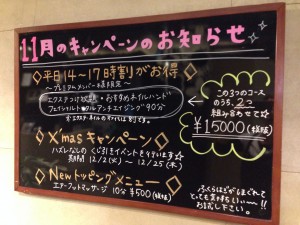 11月のキャンペーンのお知らせ
◇平日14~17時割がお得◇
~プレミアムメンバー様限定~
エクステつけ放題・おすすめネイルハンド
フェイシャルトータルアンチエイジング 90分
この3つのコース
のうち、2つ
組み合わせで☆
¥15000(税抜)
◇X'masキャンペーン◇
ハズレなしのくじ引きイベントを行います☆
期間 12/2(火)~12/25(木)
◇Newトッピングメニュー◇
エアーフットマッサージ 10分 ¥500(税抜)
ふくらはぎがほぐれて
とっても気持ちいい…!!
お試し下さい。